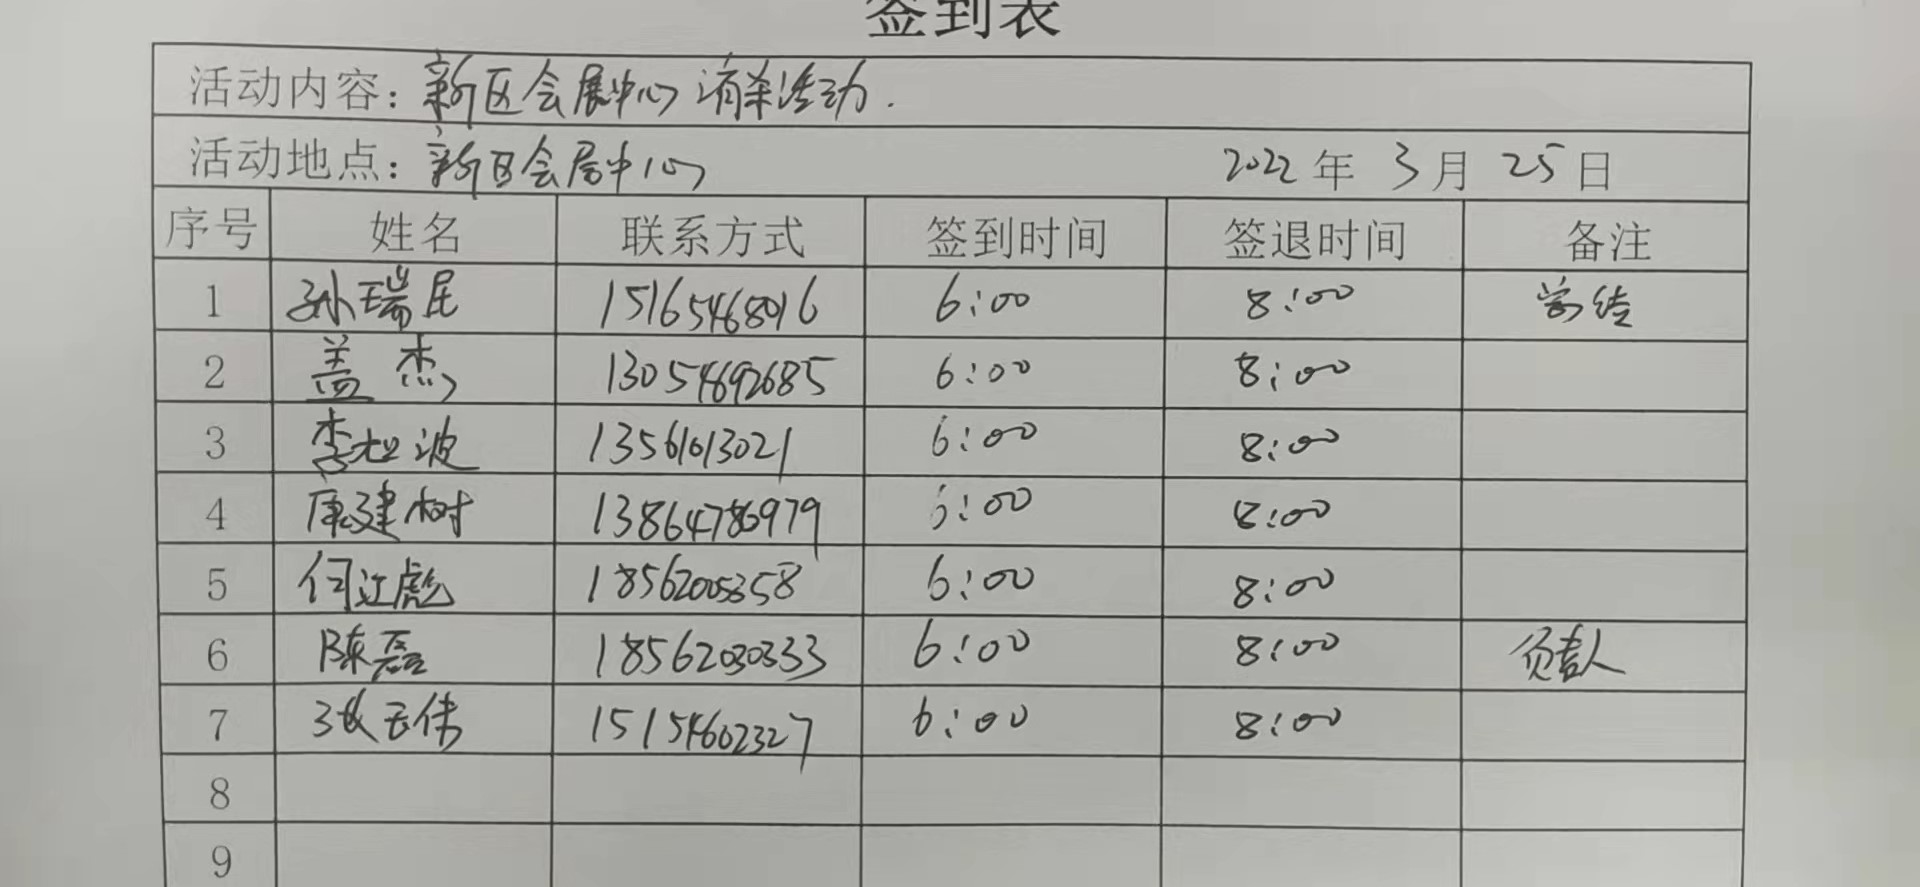 签到表
活动内容：新区会展中心消杀活动.
活动地点：新区会展中心 2022年 3月 25日
序号 姓名 联系方式 签到时间 签退时间 备注
1 孙瑞民 15165468016 6:00 8:00
2 盖杰 13054692685 6:00 8:00
3 李 波 13561013021 6:00 8:00
4 康建树 13864786979 6:00 8:00
5 何 彪 18562005358 6:00 8:00
6 陈磊 18562030333 6:00 8:00 负责人
7 张云伟 15154602327 6:00 8:00
8
9